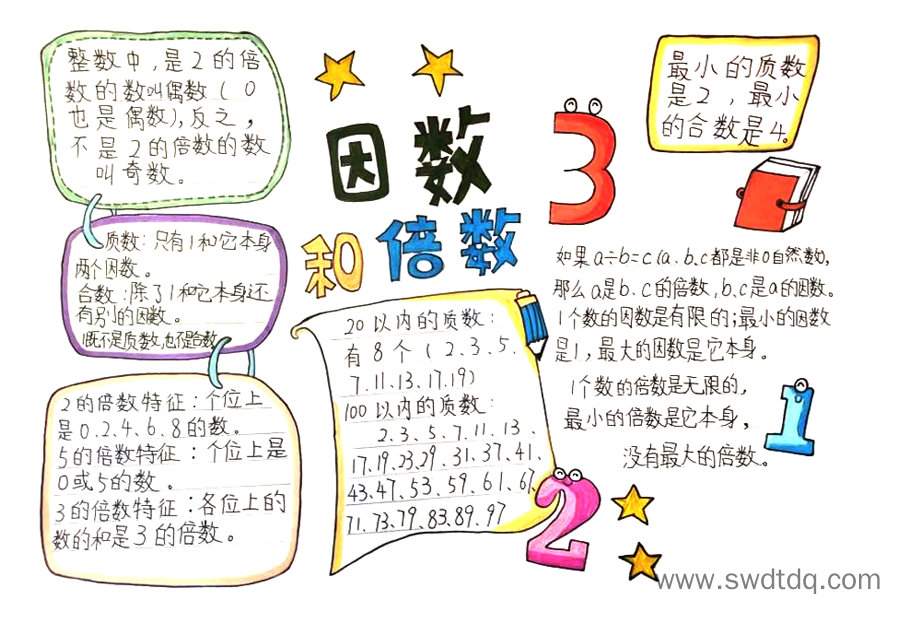 整数中,是2的倍
数的数叫偶数(0
也是偶数),反之,
不是2的倍数的数
叫奇数。
质数:只有1和它本身
两个因数。
合数:除了1和它本身还
有别的因数。
1既不是质数,也不是合数
2的倍数特征:个位上
是0.2.4、6.8的数。
5的倍数特征:个位上是
0或5的数。
3的倍数特征:各位上的
数的和是3的倍数。
因数
和倍数
20以内的质数:
有8个(2.3.5.
7.11.13.17.19)
100以内的质数:
2.3、5、7.11、13、
17、19、23.29、31、37、41、
43、47、53、59、61、67、
71、73、79、83、89、97
3
最小的质数
是2,最小
的合数是4。
如果a÷b=c(a、b.c都是非0自然数),
那么a是b、c的倍数,b、c是a的因数。
1个数的因数是有限的;最小的因数
是1,最大的因数是它本身。
1个数的倍数是无限的,
最小的倍数是它本身,
没有最大的倍数。
1
2
www.swdtdq.com